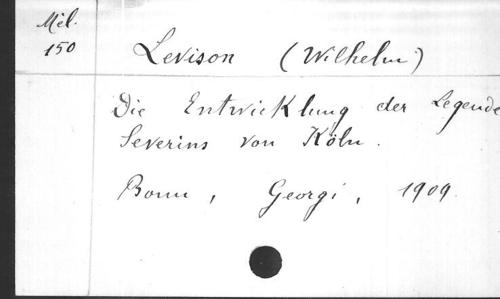 Mél.
150
Levison (Wilhelm)
Die Entwicklung der Legende
Severins von Köln.
Bonn, Georgi, 1909.